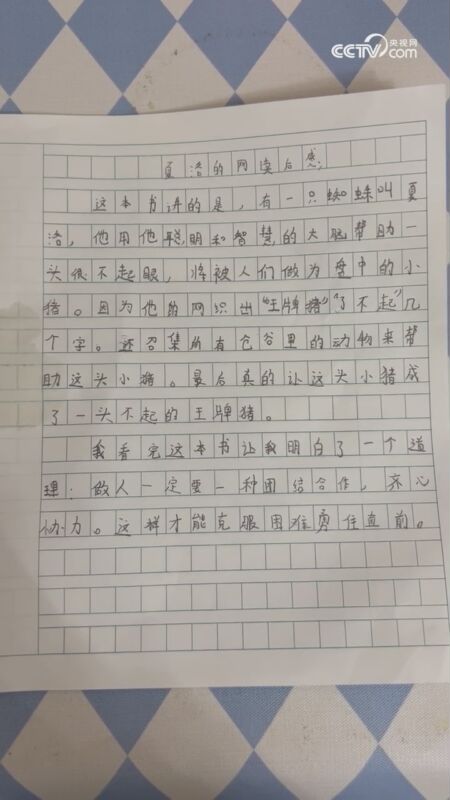 CCTV.com 央视网
夏洛的网读后感
这本书讲的是，有一只蜘蛛叫夏
洛，他用他聪明和智慧的大脑帮助一
头很不起眼，将被人们做为盘中的小
猪。因为他的网织出“王牌猪”“了不起”几
个字。还召集所有仓谷里的动物来帮
助这头小猪。最后真的让这头小猪成
了一头不起的王牌猪。
我看完这本书让我明白了一个道
理：做人一定要一种团结合作，齐心
协力。这样才能克服困难勇往直前。